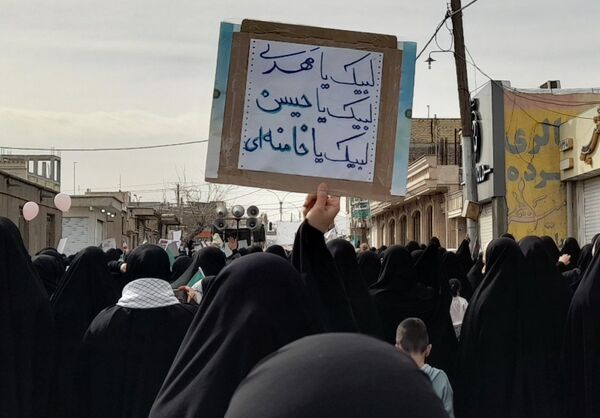 لبیک یا مهدی
لبیک یا حسین
لبیک یا خامنه‌ای